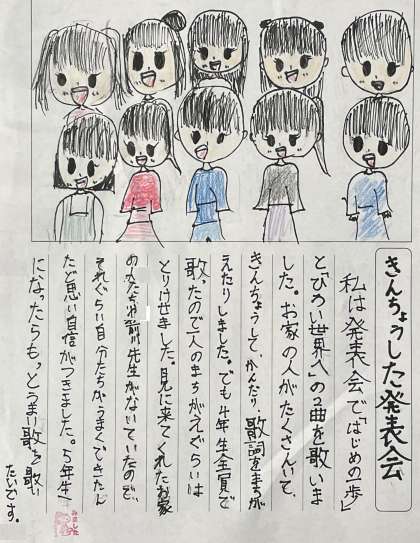 きんちょうした発表会
私は発表会で「はじめの一歩」
と「ひろい世界へ」の2曲を歌いま
した。お家の人がたくさんいて、
きんちょうして、かんだり、歌詞をまちが
えたりしました。でも4年生全員で
歌ったので一人のまちがえぐらいは
とりけせました。見に来てくれたお家
の人たちや前川先生がないていたので、
それぐらい自分たちがうまくできたん
だと思い自信がつきました。5年生
になったらもっとうまい歌を歌い
たいです。
みました